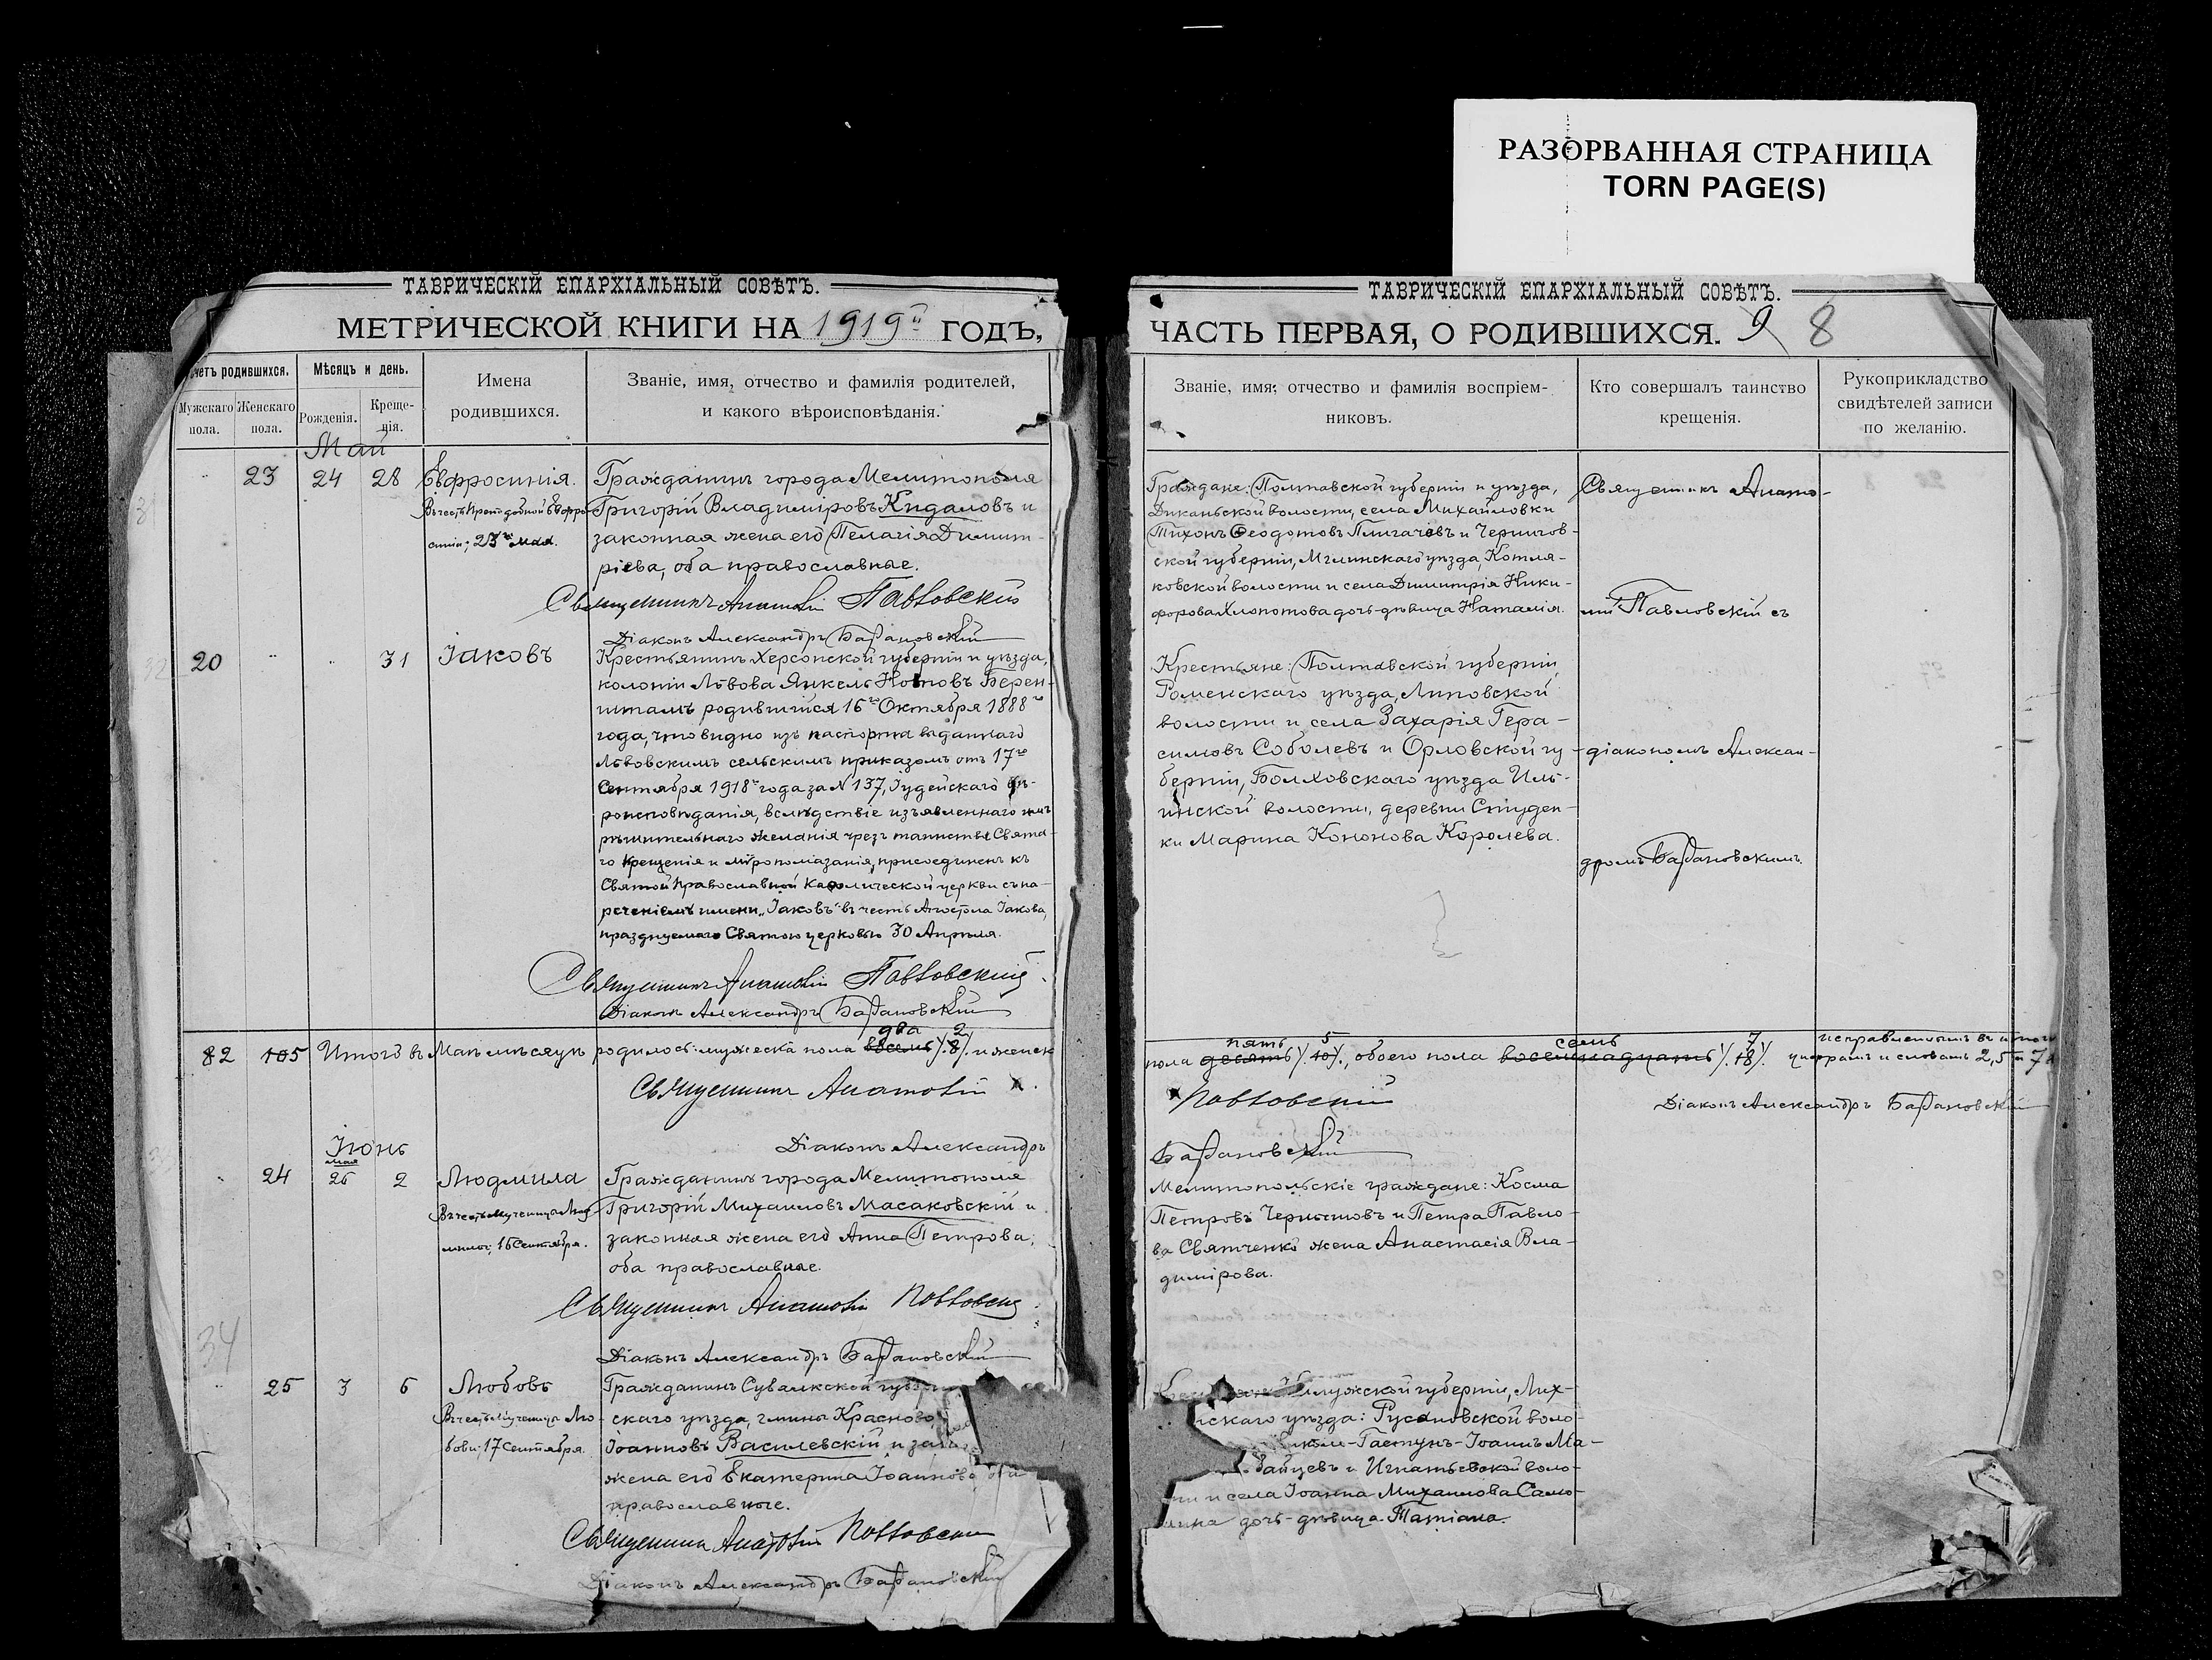 РАЗОРВАННАЯ СТРАНИЦА
TORN PAGE(S)
ТАВРИЧЕСКІЙ ЕПАРХІАЛЬНЫЙ СОВѢТЪ.
МЕТРИЧЕСКОЙ КНИГИ НА 1919й ГОДЪ,
четъ родившихся.
Мѣсяцъ и день.
Мужскаго пола.
Женскаго пола.
Рожденія.
Креще-
нія.
Имена
родившихся.
Званіе, имя, отчество и фамилія родителей,
и какого вѣроисповѣданія.
Май
23 24 28 Евфросинія.
Въ честь Преподобной Евфро-
синіи; 23го мая.
Гражданинъ города Мелитополя
Григорій Владиміровъ Кидаловъ и
законная жена его Пелагія Димит-
ріева, оба православные.
Священникъ Анатолій Павловскій
Діаконъ Александръ Барановскій
20 31 Іаковъ
Крестьянинъ Херсонской губерніи и уѣзда,
колоніи Львова Янкель Берен-
штамъ родившійся 16го Октября 1888го
года, что видно изъ паспорта выданнаго
Львовскимъ сельскимъ приказомъ отъ 17го
Сентября 1918го года за № 137, Іудейскаго вѣ-
роисповѣданія, вслѣдствіе изъявленнаго имъ
рѣшительнаго желанія чрезъ таинства Свята-
го Крещенія и мѵропомазанія, присоединенъ къ
Святой Православной Каѳолической церкви съ на-
реченіемъ имени „Іаковъ" въ честь Апостола Іакова,
празднуемаго Святою церковью 30 Апрѣля.
Священникъ Анатолій Павловскій
Діаконъ Александръ Барановскій
два 2
82 105 Итого въ Маѣ мѣсяцѣ родилось: мужеска пола восемь /.8/. и женск
Священникъ Анатолій
Діаконъ Александръ
Іюнь
мая
24 2 Людмила
Въ честь Мученицы Люд
милы; 16 Сентября.
Гражданинъ города Мелитополя
Григорій Михаиловъ Масаковскій и
законная жена его Анна Петрова,
оба православные.
Священникъ Анатолій Павловскій
Діаконъ Александръ Барановскій
34
25 3 6 Любовь
Въ честь Мученицы Лю-
бови; 17 Сентября.
Гражданинъ Сувалкской
скаго уѣзда, гмины Красново
Іоанновъ Василевскій и
жена его Екатерина Іоаннова
православные.
Священникъ Анатолій Павловскій
Діаконъ Александръ Барановскій
ТАВРИЧЕСКІЙ ЕПАРХІАЛЬНЫЙ СОВѢТЪ.
ЧАСТЬ ПЕРВАЯ, О РОДИВШИХСЯ. 9 8
Званіе, имя, отчество и фамилія воспріем-
никовъ.
Кто совершалъ таинство
крещенія.
Рукоприкладство
свидѣтелей записи
по желанію.
Граждане: Полтавской губерніи и уѣзда,
Диканьской волости, села Михайловки
Тихонъ Ѳеодотовъ Плигачевъ и Чернигов-
ской губерніи, Мглинскаго уѣзда, Котля-
ковской волости и села Димитрія Ники-
форова Хлопотова дочь-дѣвица Наталія.
Священникъ Анато-
лій Павловскій съ
Крестьяне: Полтавской губерніи,
Роменскаго уѣзда, Липовской
волости и села Захарія Гера-
симовъ Соболевъ и Орловской гу-
берніи, Болховскаго уѣзда Иль-
инской волости, деревни Студен-
ки Марина Кононова Королева.
діакономъ Алексан-
дромъ Барановскимъ.
пять 5 семь 7 исправленнымъ въ итогѣ
пола десять /.10/., обоего пола восемнадцать /.18/. цифрамъ и словамъ 2, 5 и 7
Павловскій
Діаконъ Александръ Барановскій
Барановскій
Мелитопольскіе граждане: Косма
Петровъ Чернышовъ и Петра Павло-
ва Святченко жена Анастасія Вла-
димірова.
Калужской губерніи, Лих-
скаго уѣзда: Русановской воло-
Іоаннъ Ма-
и Игнатьевской воло-
и села Іоанна Михаилова Само-
дочь-дѣвица Татіана.